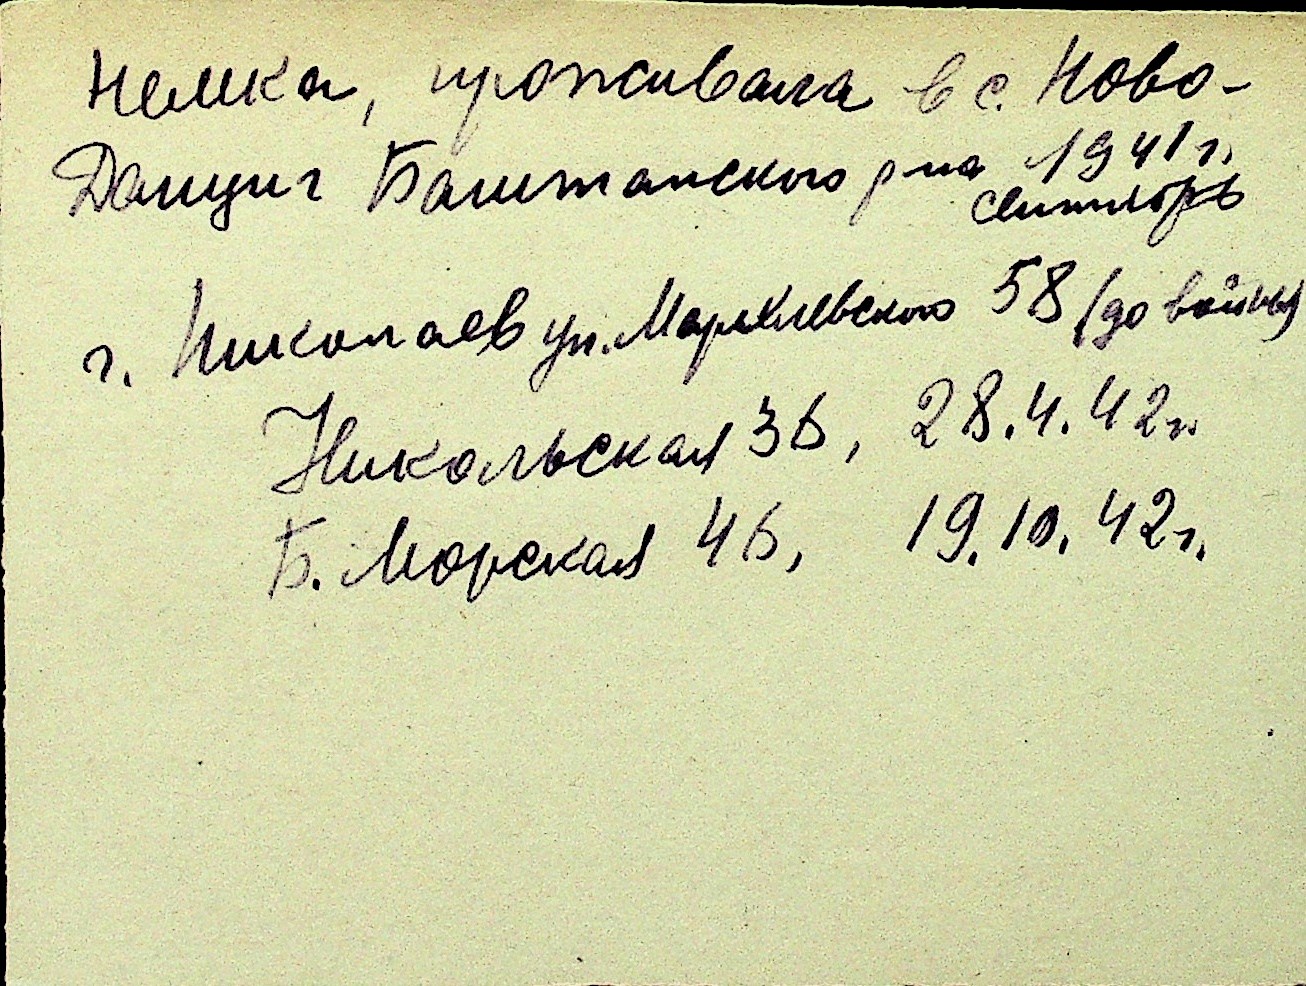 Немка, проживала в с. Ново-
Данциг Баштанского р-на 1941 г.
сентябрь
г. Николаев ул. Мархлевского 58 (до войны)
Никольская 36, 28.4.42 г.
Б. Морская 46, 19.10.42 г.